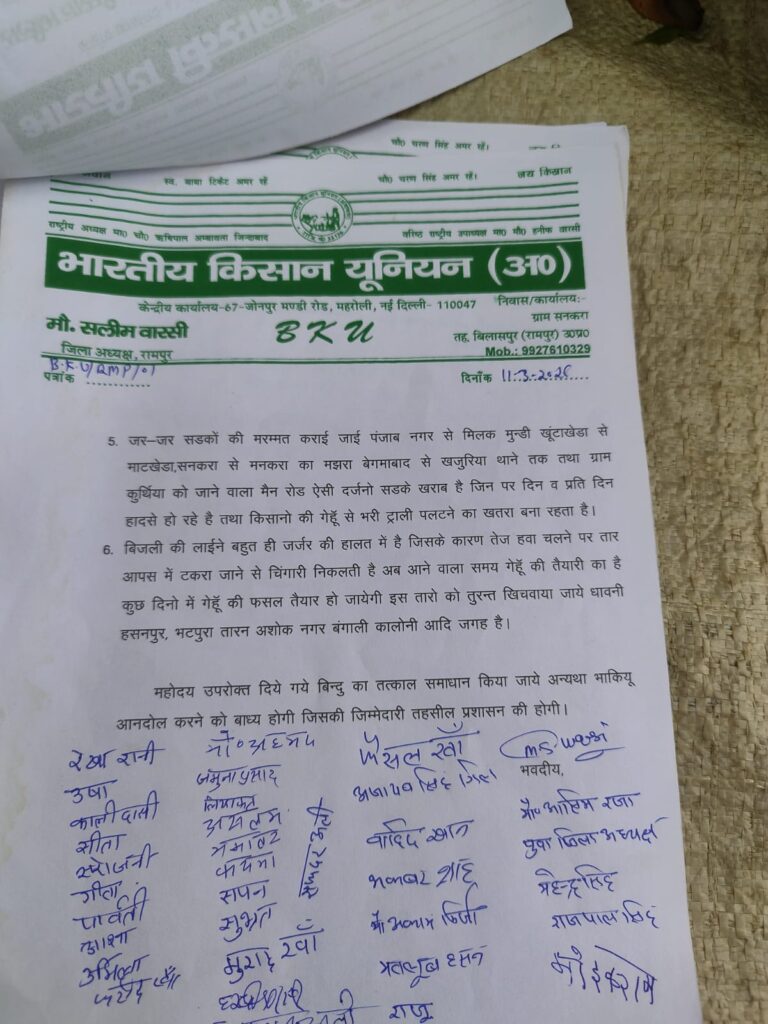 चौ0 चरण सिंह अमर रहें।
स्व. बाबा टिकैट अमर रहें
चौ0 चरण सिंह अमर रहें।
जय किसान
राष्ट्रीय अध्यक्ष मा0 चौ0 ऋषिपाल अम्बावता जिन्दाबाद
वरिष्ठ राष्ट्रीय उपाध्यक्ष मा0 मौ0 हनीफ वारसी
भारतीय किसान यूनियन (अ0)
केन्द्रीय कार्यालय-67-जोनपुर मण्डी रोड, महरोली, नई दिल्ली- 110047
निवास/कार्यालय:-
मौ. सलीम वारसी
BKU
ग्राम सनकरा
जिला अध्यक्ष, रामपुर
तह. बिलासपुर (रामपुर) उ0प्र0
Mob.: 9927610329
B.K.U/RMP/01
पत्रांक ............
दिनाँक 11.3-2026....
5. जर–जर सडकों की मरम्मत कराई जाई पंजाब नगर से मिलक मुन्डी खूंटाखेडा से
माटखेडा,सनकरा से मनकरा का मझरा बेगमाबाद से खजुरिया थाने तक तथा ग्राम
कुर्थिया को जाने वाला मैन रोड ऐसी दर्जनो सडके खराब है जिन पर दिन व प्रति दिन
हादसे हो रहे है तथा किसानो की गेहूॅ से भरी ट्राली पलटने का खतरा बना रहता है।
6. बिजली की लाईने बहुत ही जर्जर की हालत में है जिसके कारण तेज हवा चलने पर तार
आपस में टकरा जाने से चिंगारी निकलती है अब आने वाला समय गेहूॅ की तैयारी का है
कुछ दिनो में गेहूॅ की फसल तैयार हो जायेगी इस तारो को तुरन्त खिचवाया जाये धावनी
हसनपुर, भटपुरा तारन अशोक नगर बंगाली कालोनी आदि जगह है।
महोदय उपरोक्त दिये गये बिन्दु का तत्काल समाधान किया जाये अन्यथा भाकियू
आनदोल करने को बाध्य होगी जिसकी जिम्मेदारी तहसील प्रशासन की होगी।
भवदीय,
रेखा रानी
उषा
काली दासी
सीता
सरोजनी
गीता
पार्वती
आशा
उर्मिला
मौ० अहमद
जमुना प्रसाद
लियाकत
असलम
सपन
सुभत
मुराद खाँ
फैसल खाँ
अजायब सिंह गिल
वाहिद खान
अकबर शाह
मतलूब हसन
राजू
युवा जिला अध्यक्ष
महेन्द्र सिंह
राजपाल सिंह